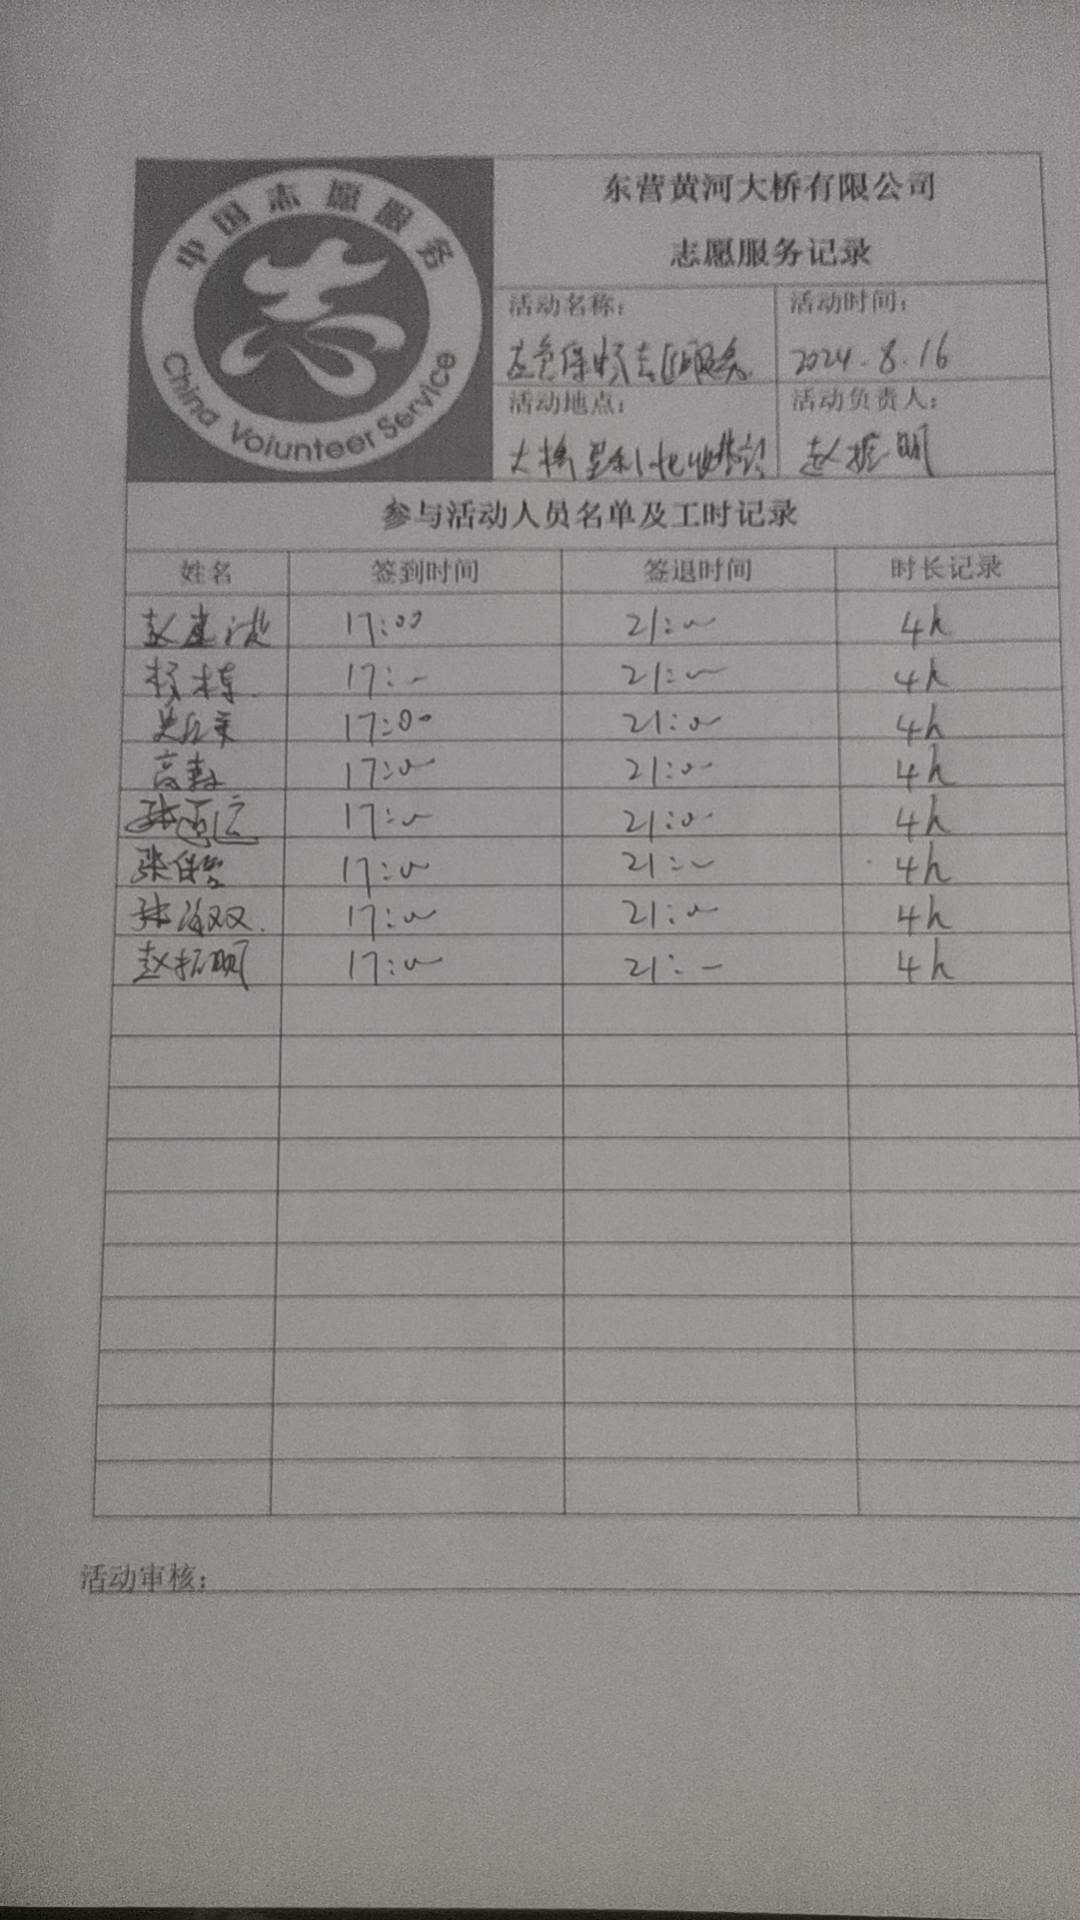 中国志愿服务
China Volunteer Service
东营黄河大桥有限公司
志愿服务记录
活动名称： 活动时间：
保畅志愿服务 2024.8.16
活动地点： 活动负责人：
大桥垦利北收费站 赵振明
参与活动人员名单及工时记录
姓名 签到时间 签退时间 时长记录
赵建波 17:00 21:00 4h
杨栋 17:00 21:00 4h
17:00 21:00 4h
高 17:00 21:00 4h
张 17:00 21:00 4h
张 17:00 21:00 4h
张海双 17:00 21:00 4h
赵振明 17:00 21:00 4h
活动审核：